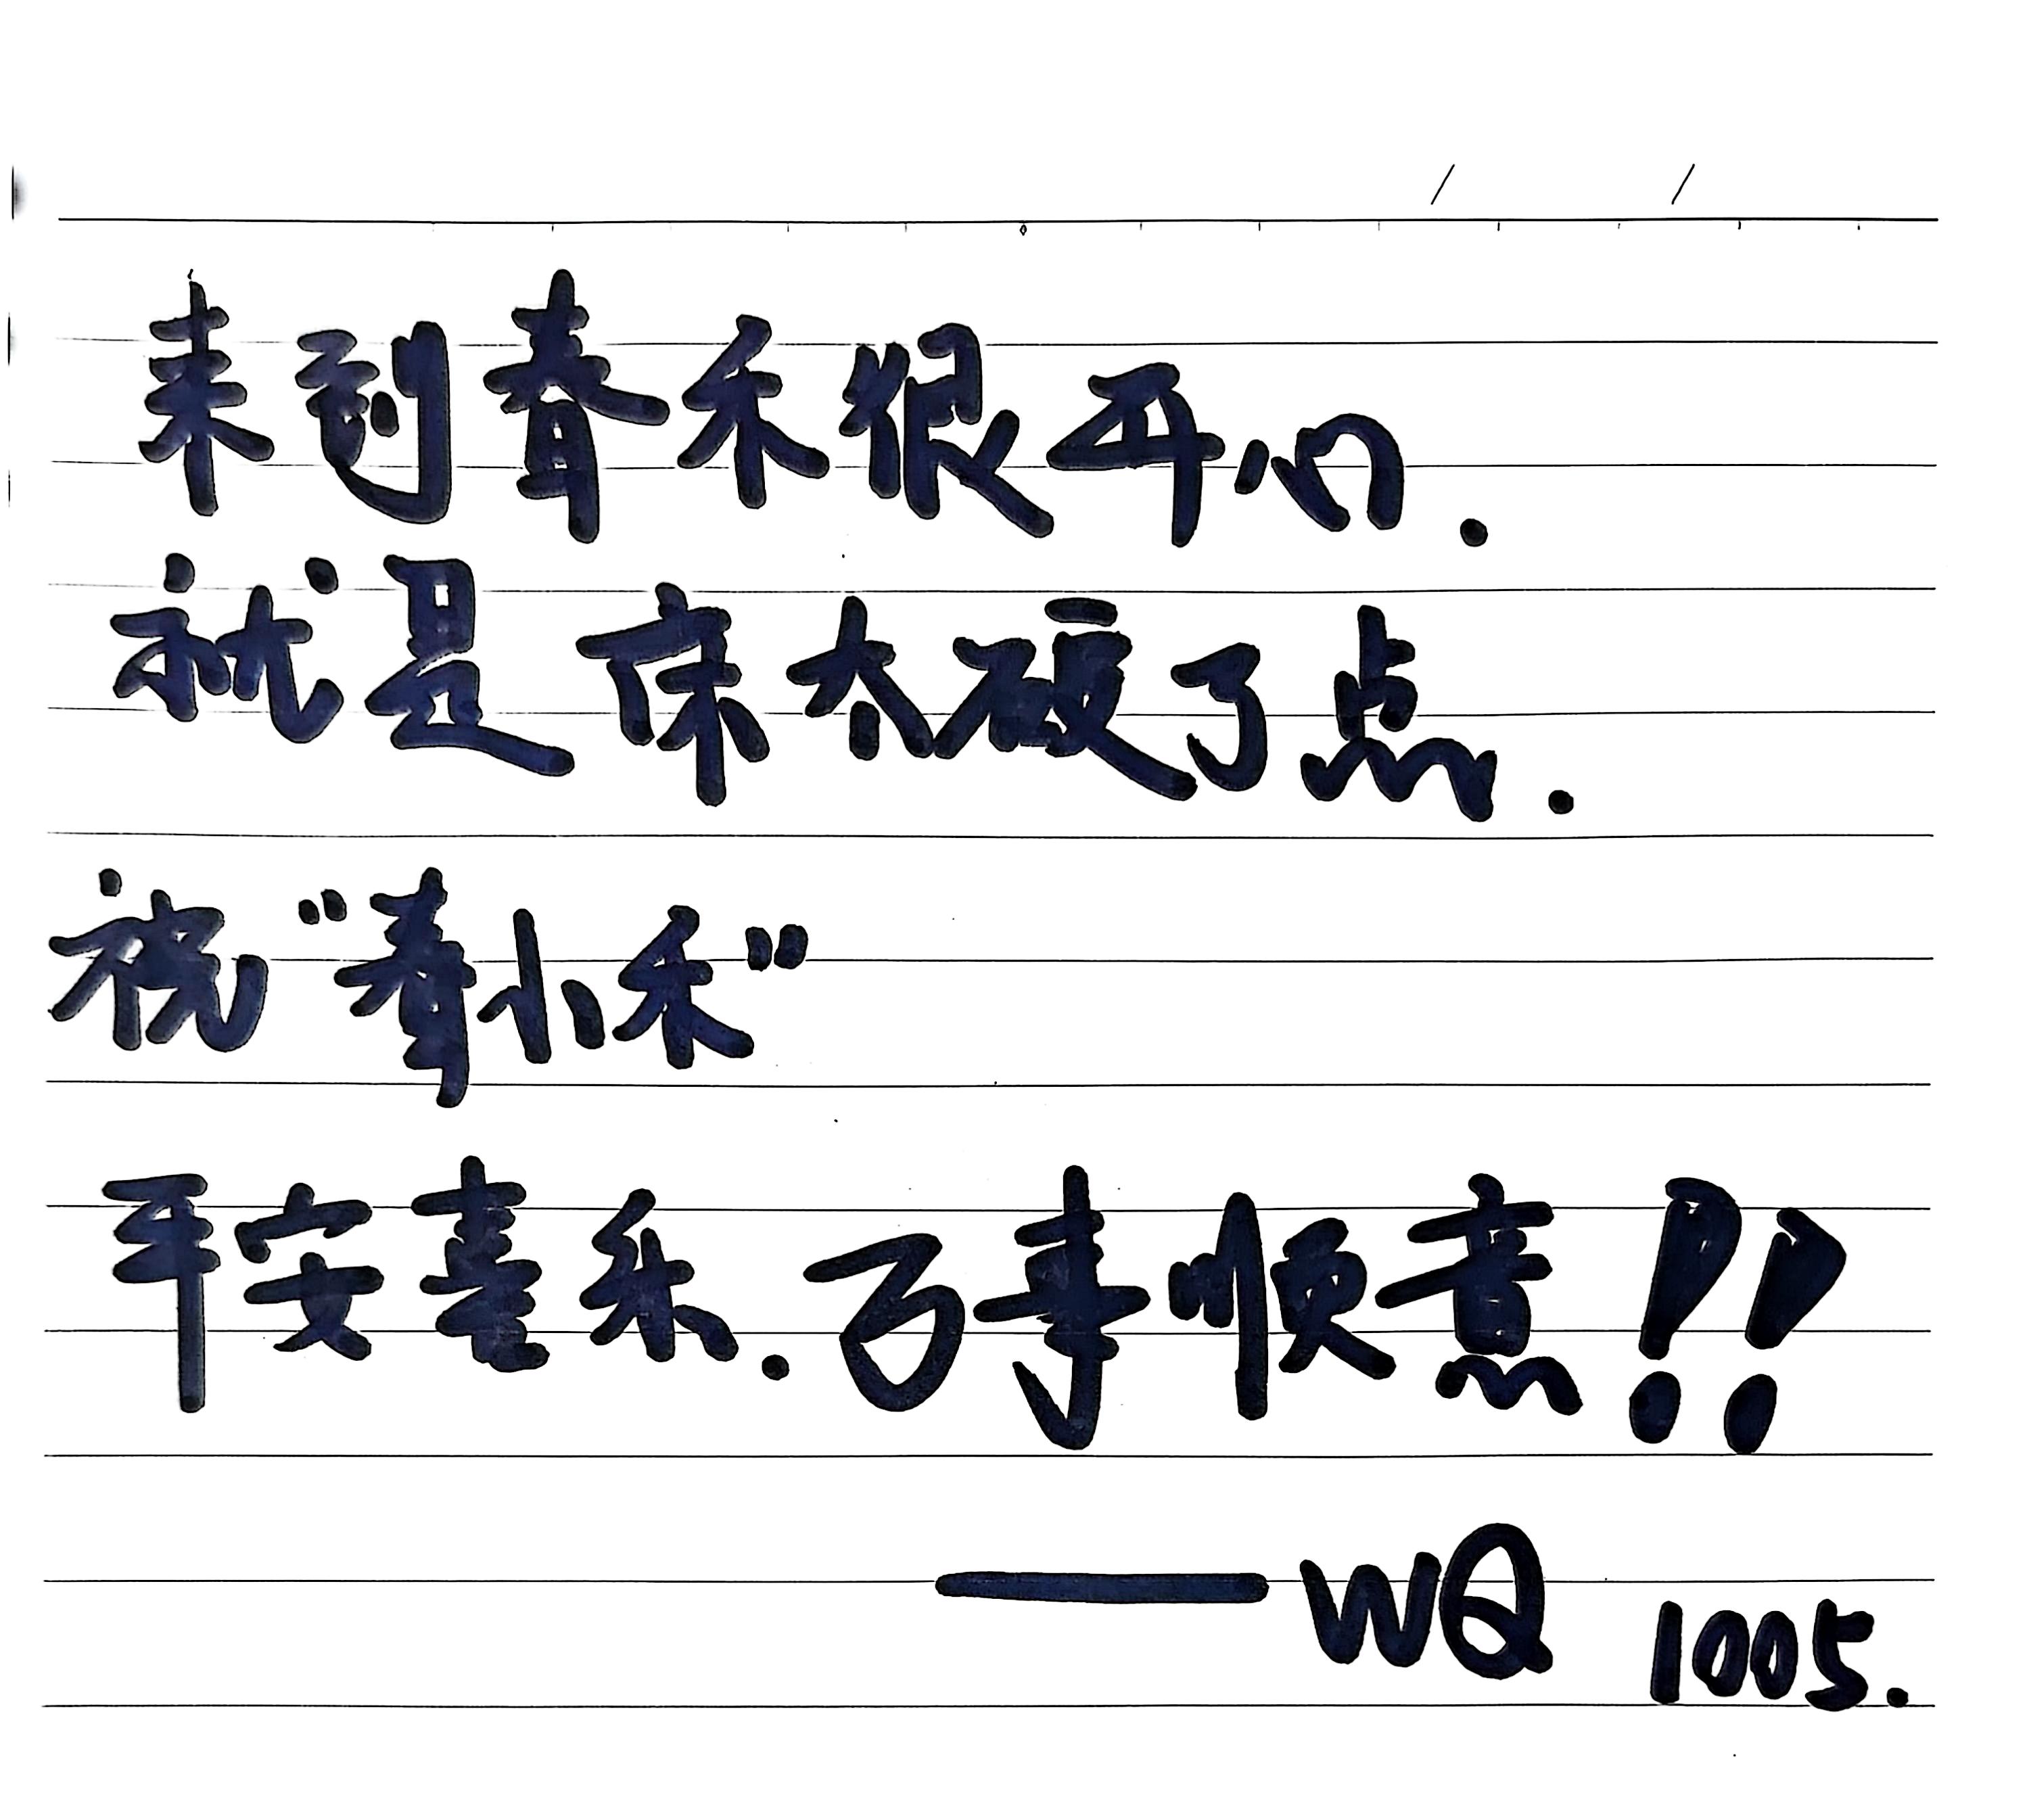 来到春禾很开心.
就是床太硬了点.
祝“春小禾”
平安喜乐.万事顺意!!
——WQ 1005.